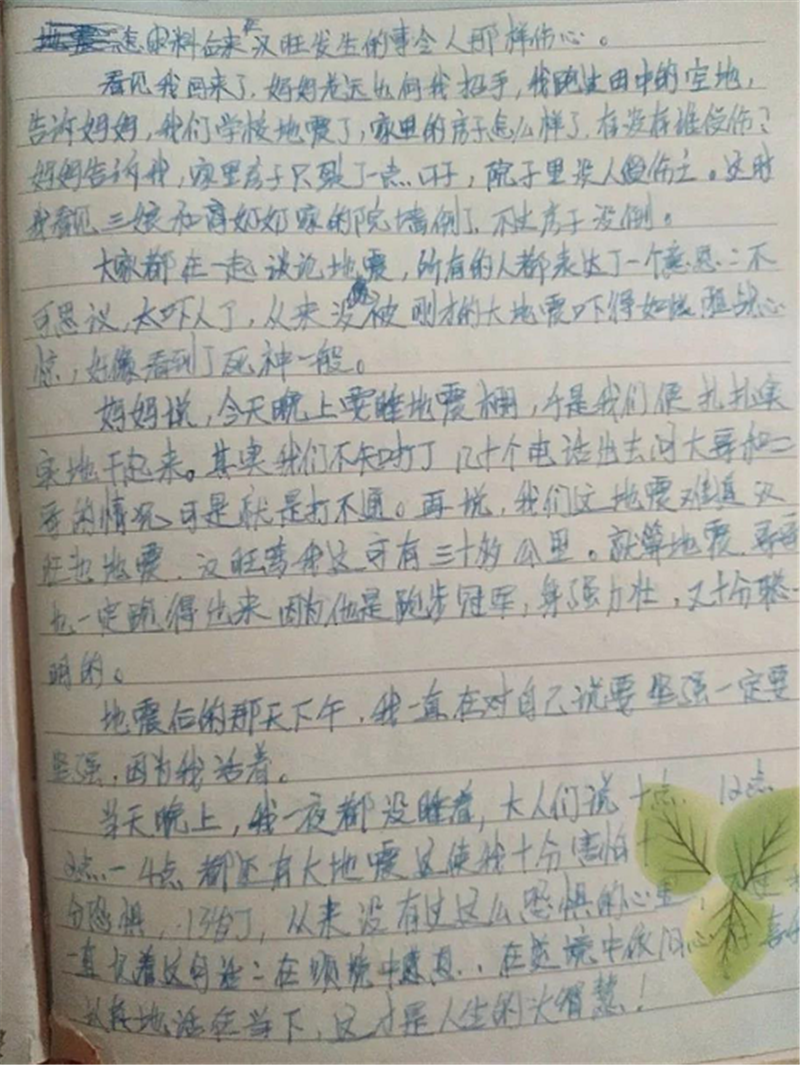 怎么料后来汉旺发生的事令人那样伤心。
看见我回来了,妈妈老远也向我招手,我跑进田中的空地,
告诉妈妈,我们学校地震了,家里的房子怎么样了,有没有谁受伤?
妈妈告诉我,家里房子只裂了一点口子,院子里没人受伤亡。这时
我看见三娘和 奶奶家的院墙倒了,不过房子没倒。
大家都在一起谈论地震,所有的人都表达了一个意思:不
可思议,太吓人了,从来没被刚才的大地震吓得如 胆战心
惊,好像看到了死神一般。
妈妈说,今天晚上要睡地震棚,于是我们便扎扎实
实地干起来。其实我们不知打了几十个电话出去问大哥和二
哥的情况,可是就是打不通。再说,我们这地震难道汉
旺也地震,汉旺离我这可有三十多公里。就算地震,哥哥
也一定跑得出来因为他是跑步冠军,身强力壮,又十分聪
明的。
地震后的那天下午,我一直在对自己说要坚强一定要
坚强,因为我活着。
当天晚上,我一夜都没睡着,大人们说十点、12点
2点一4点都还有大地震这使我十分害怕十
分恐惧,13岁了,从来没有过这么恐惧的心里!
一直 着这句话:在顺境中感恩,在逆境中依旧心存喜
认真地活在当下,这才是人生的大智慧!